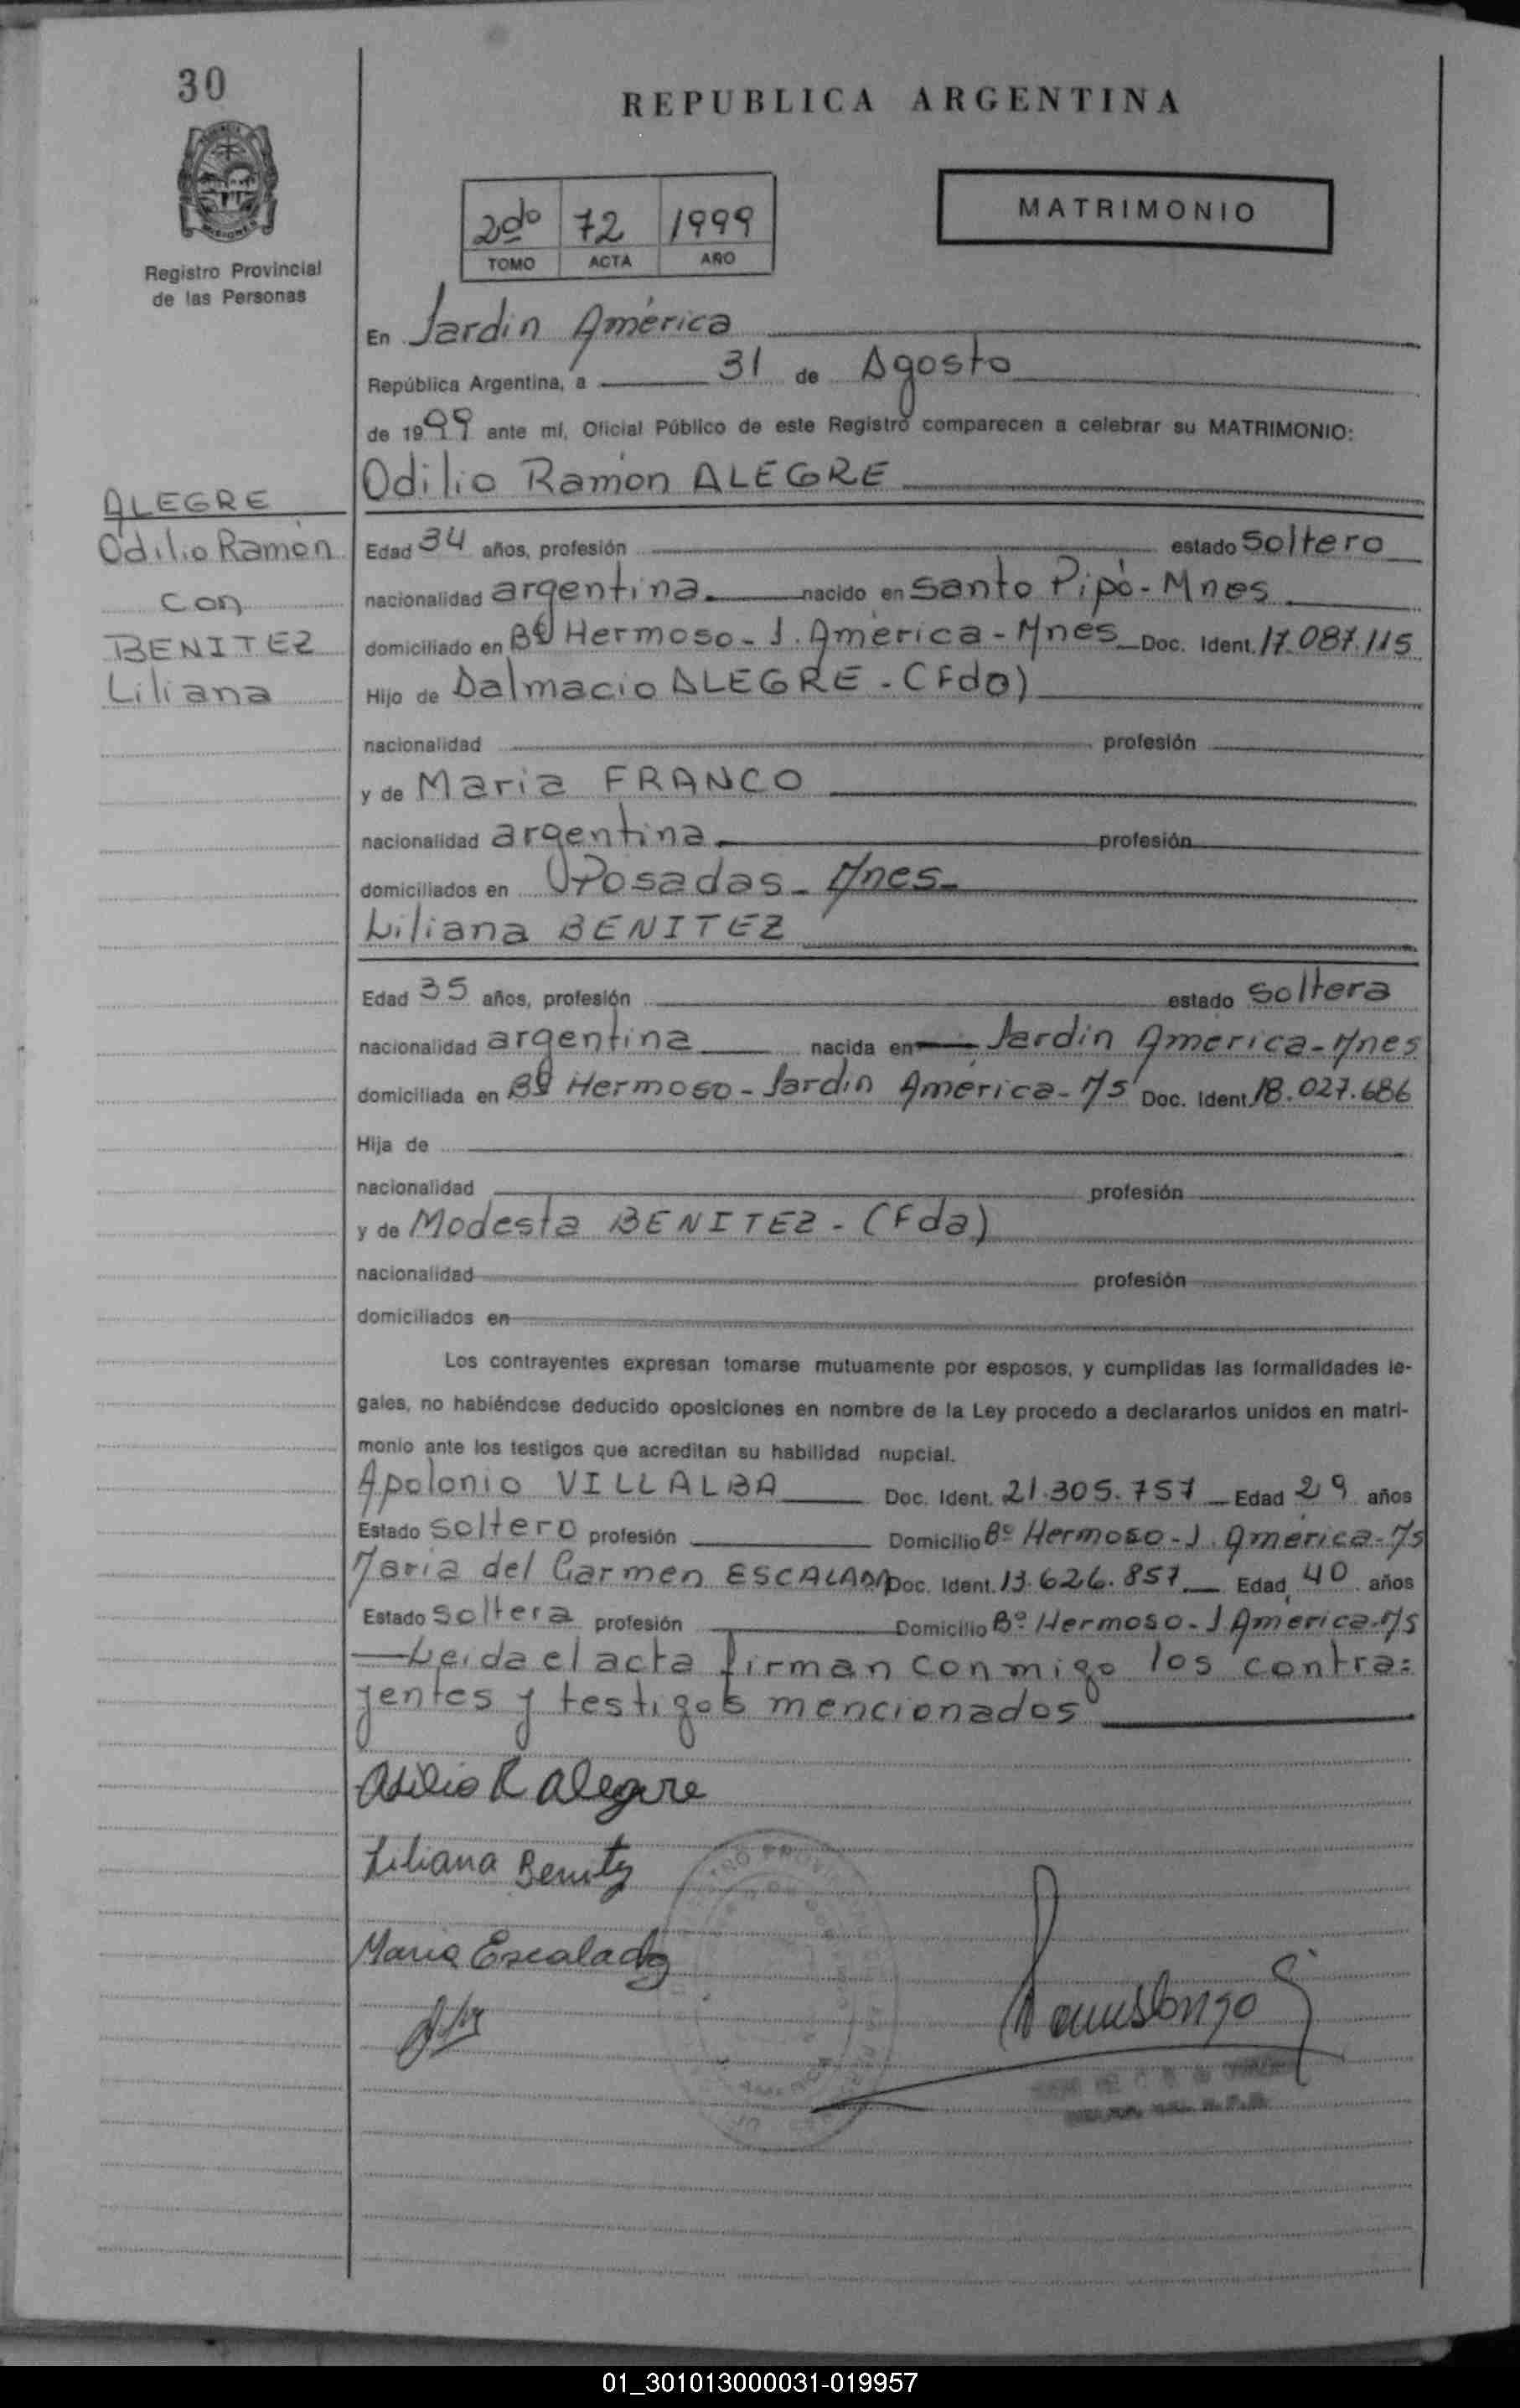 30
REPUBLICA ARGENTINA
MISIONES
Registro Provincial
de las Personas
2do 72 1999
TOMO ACTA AÑO
MATRIMONIO
En Jardín América
República Argentina, a 31 de Agosto
de 1999 ante mí, Oficial Público de este Registro comparecen a celebrar su MATRIMONIO:
Odilio Ramón ALEGRE
ALEGRE
Odilio Ramón
con
BENITEZ
Liliana
Edad 34 años, profesión estado soltero
nacionalidad argentina. nacido en Santo Pipó - Mnes
domiciliado en Bº Hermoso - J. América - Mnes Doc. Ident. 17.087.115
Hijo de Dalmacio ALEGRE - (Fdo)
nacionalidad profesión
y de Maria FRANCO
nacionalidad argentina. profesión
domiciliados en Posadas - Mnes -
Liliana BENITEZ
Edad 35 años, profesión estado soltera
nacionalidad argentina nacida en Jardín América - Mnes
domiciliada en Bº Hermoso - Jardín América - Ms Doc. Ident. 18.027.686
Hija de
nacionalidad profesión
y de Modesta BENITEZ - (Fda)
nacionalidad profesión
domiciliados en
Los contrayentes expresan tomarse mutuamente por esposos, y cumplidas las formalidades le-
gales, no habiéndose deducido oposiciones en nombre de la Ley procedo a declararlos unidos en matri-
monio ante los testigos que acreditan su habilidad nupcial.
Apolonio VILLALBA Doc. Ident. 21.305.757 Edad 29 años
Estado soltero profesión Domicilio Bº Hermoso - J. América - Ms
Maria del Carmen Doc. Ident. 13.626.857 Edad 40 años
Estado soltera profesión Domicilio Bº Hermoso - J. América - Ms
Leida el acta firman conmigo los contra=
yentes y testigos mencionados
Odilio R Alegre
Liliana Benitez
Maria Escalada
01_301013000031-019957